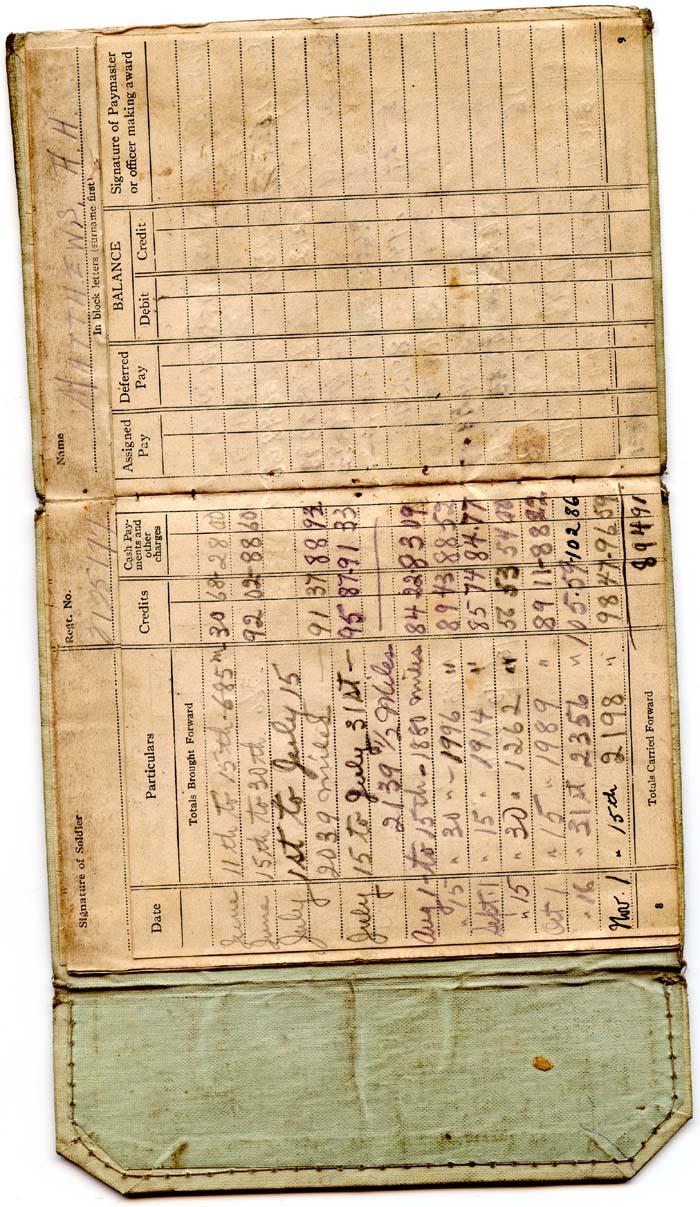 Regt. No. 2125174 Name MATTHEWS, H. H.
Signature of Soldier In block letters (surname first)
Date Particulars Credits Cash Payments and other charges Assigned Pay Deferred Pay BALANCE Debit Credit Signature of Paymaster or officer making award
Totals Brought Forward
June 11th to 15th - 685 m 30 68 - 28 00
June 15th to 30th 92 02 - 88 60
July 1st to July 15
2039 miles - 91 37 88 92
July 15 to July 31st - 95 87 - 91 33
2139 1/2 Miles
Aug 1st to 15th - 1880 miles 84 22 83 09
" 15 " 30 " - 1996 " 89 43 88 52
Sept 1 " 15 " 1914 " 85 74 84.77
" 15 " 30 " 1262 " 56 53 54
Oct 1 " 15 " 1989 " 89 11 - 88 22
" 16 " 31st 2356 " 105.57 102 86
Nov. 1 " 15th 2198 " 98 47 - 96 59
894 91
8 Totals Carried Forward 9